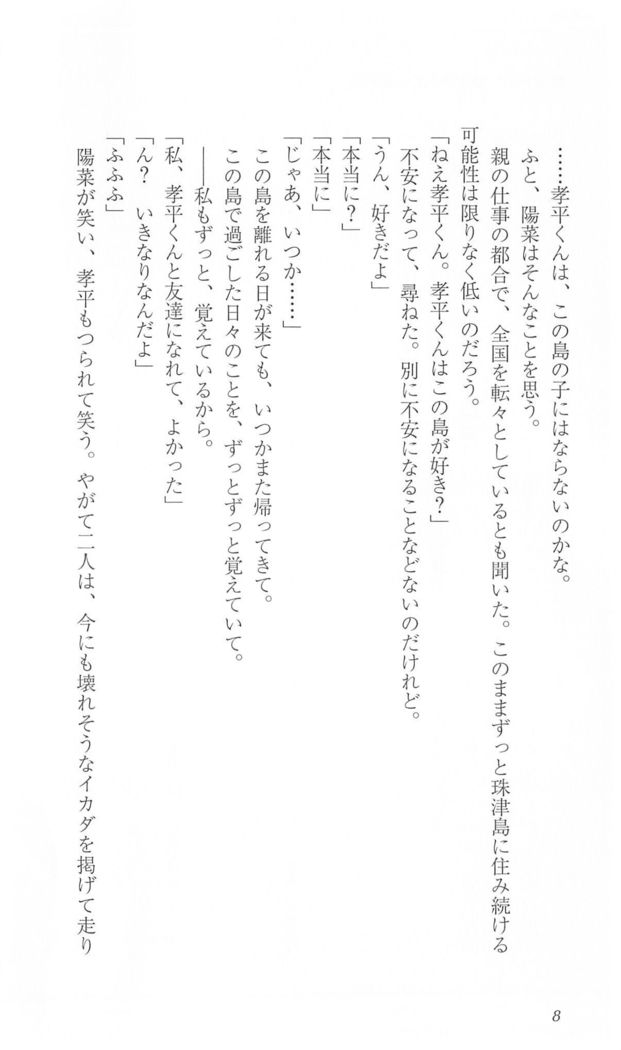 ……孝平くんは、この島の子にはならないのかな。
ふと、陽菜はそんなことを思う。
親の仕事の都合で、全国を転々としているとも聞いた。このままずっと珠津島に住み続ける
可能性は限りなく低いのだろう。
「ねえ孝平くん。孝平くんはこの島が好き?」
不安になって、尋ねた。別に不安になることなどないのだけれど。
「うん、好きだよ」
「本当に?」
「本当に」
「じゃあ、いつか……」
この島を離れる日が来ても、いつかまた帰ってきて。
この島で過ごした日々のことを、ずっとずっと覚えていて。
――私もずっと、覚えているから。
「私、孝平くんと友達になれて、よかった」
「ん? いきなりなんだよ」
「ふふふ」
陽菜が笑い、孝平もつられて笑う。やがて二人は、今にも壊れそうなイカダを掲げて走り
8